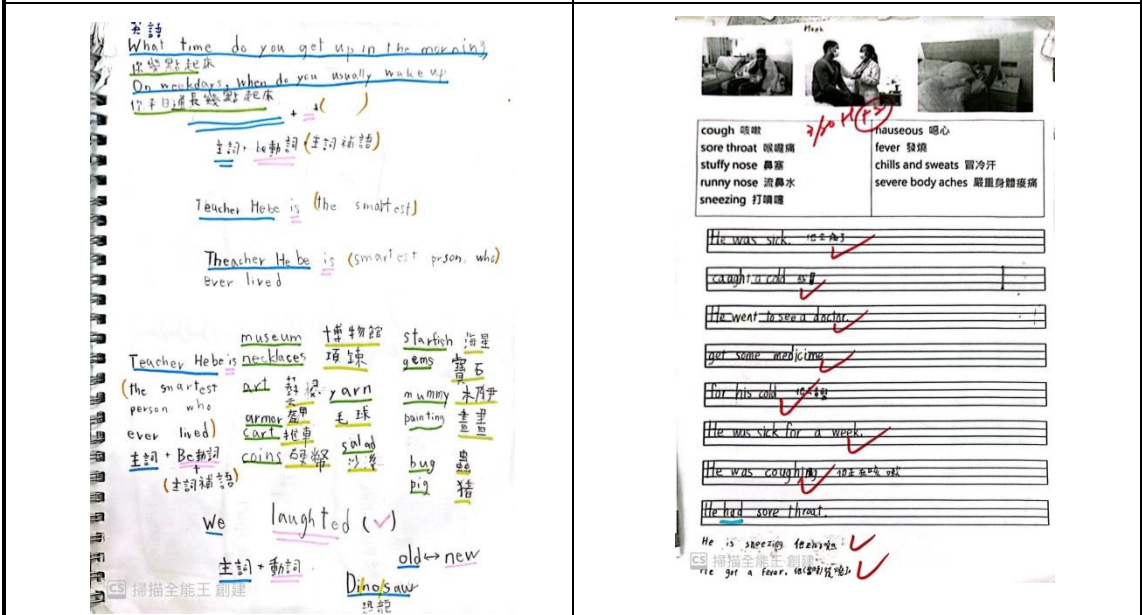 英語
What time do you get up in the morning,
你幾點起床
On weekdays, when do you usually wake up
你平日通長幾點起床
+ + ( )
主詞 + be動詞 + (主詞補語)
Teacher Hebe is (the smartest)
Theacher He be is (smartest prson, who)
ever lived
Teacher Hebe is
(the smartest
person who
ever lived)
主詞 + Be動詞
+
(主詞補語)
museum 博物館
necklaces 項鍊
art
armor 盔甲
cart 推車
coins 硬幣
yarn
毛球
salad
沙拉
starfish 海星
gems 寶石
mummy 木乃伊
painting 畫畫
bug 蟲
pig 豬
We laughted (✓)
主詞 + 動詞
old ↔ new
Dinosaur
恐龍
CS 掃描全能王 創建
Hank
cough 咳嗽
sore throat 喉嚨痛
stuffy nose 鼻塞
runny nose 流鼻水
sneezing 打噴嚏
nauseous 噁心
fever 發燒
chills and sweats 冒冷汗
severe body aches 嚴重身體痠痛
He was sick.
caught a cold
He went to see a doctor.
get some medicime
for his cold
He was sick for a week.
He was coughing
He had sore throat.
He is sneezing
He got a fever.
CS 掃描全能王 創建